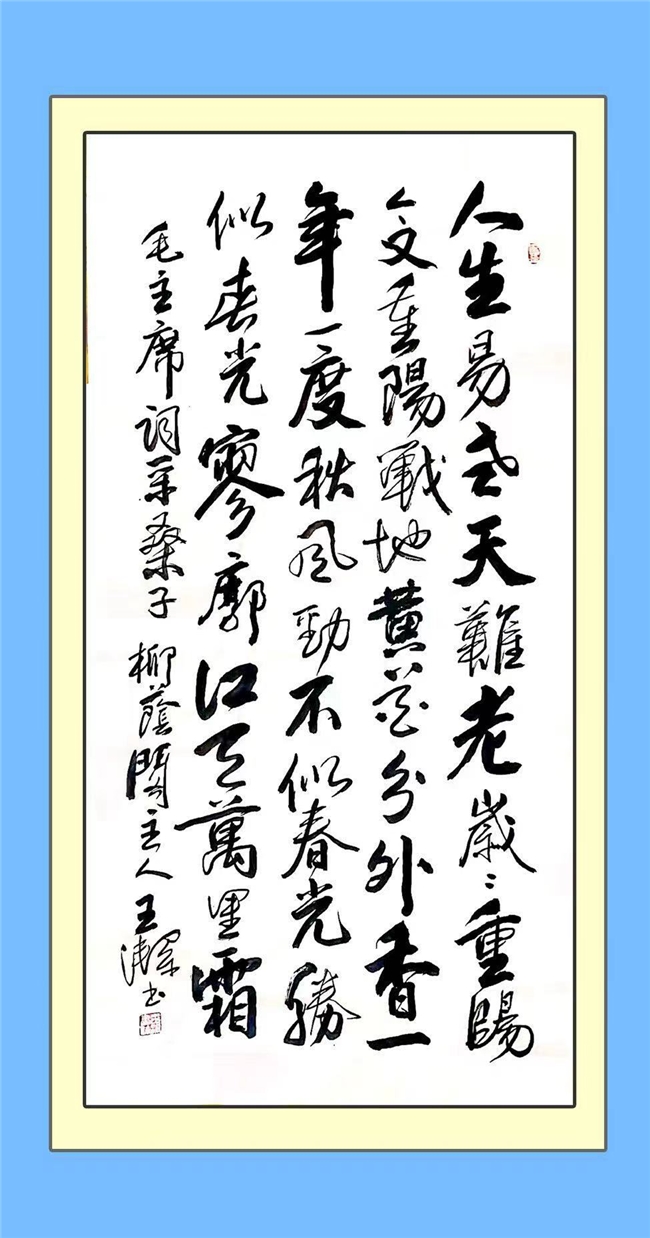 人生易老天難老歲〻重陽
今又重陽戰地黄花分外香一
年一度秋風勁不似春光勝
似春光寥廓江天萬里霜
毛主席詞采桑子 柳蔭閣主人王 书